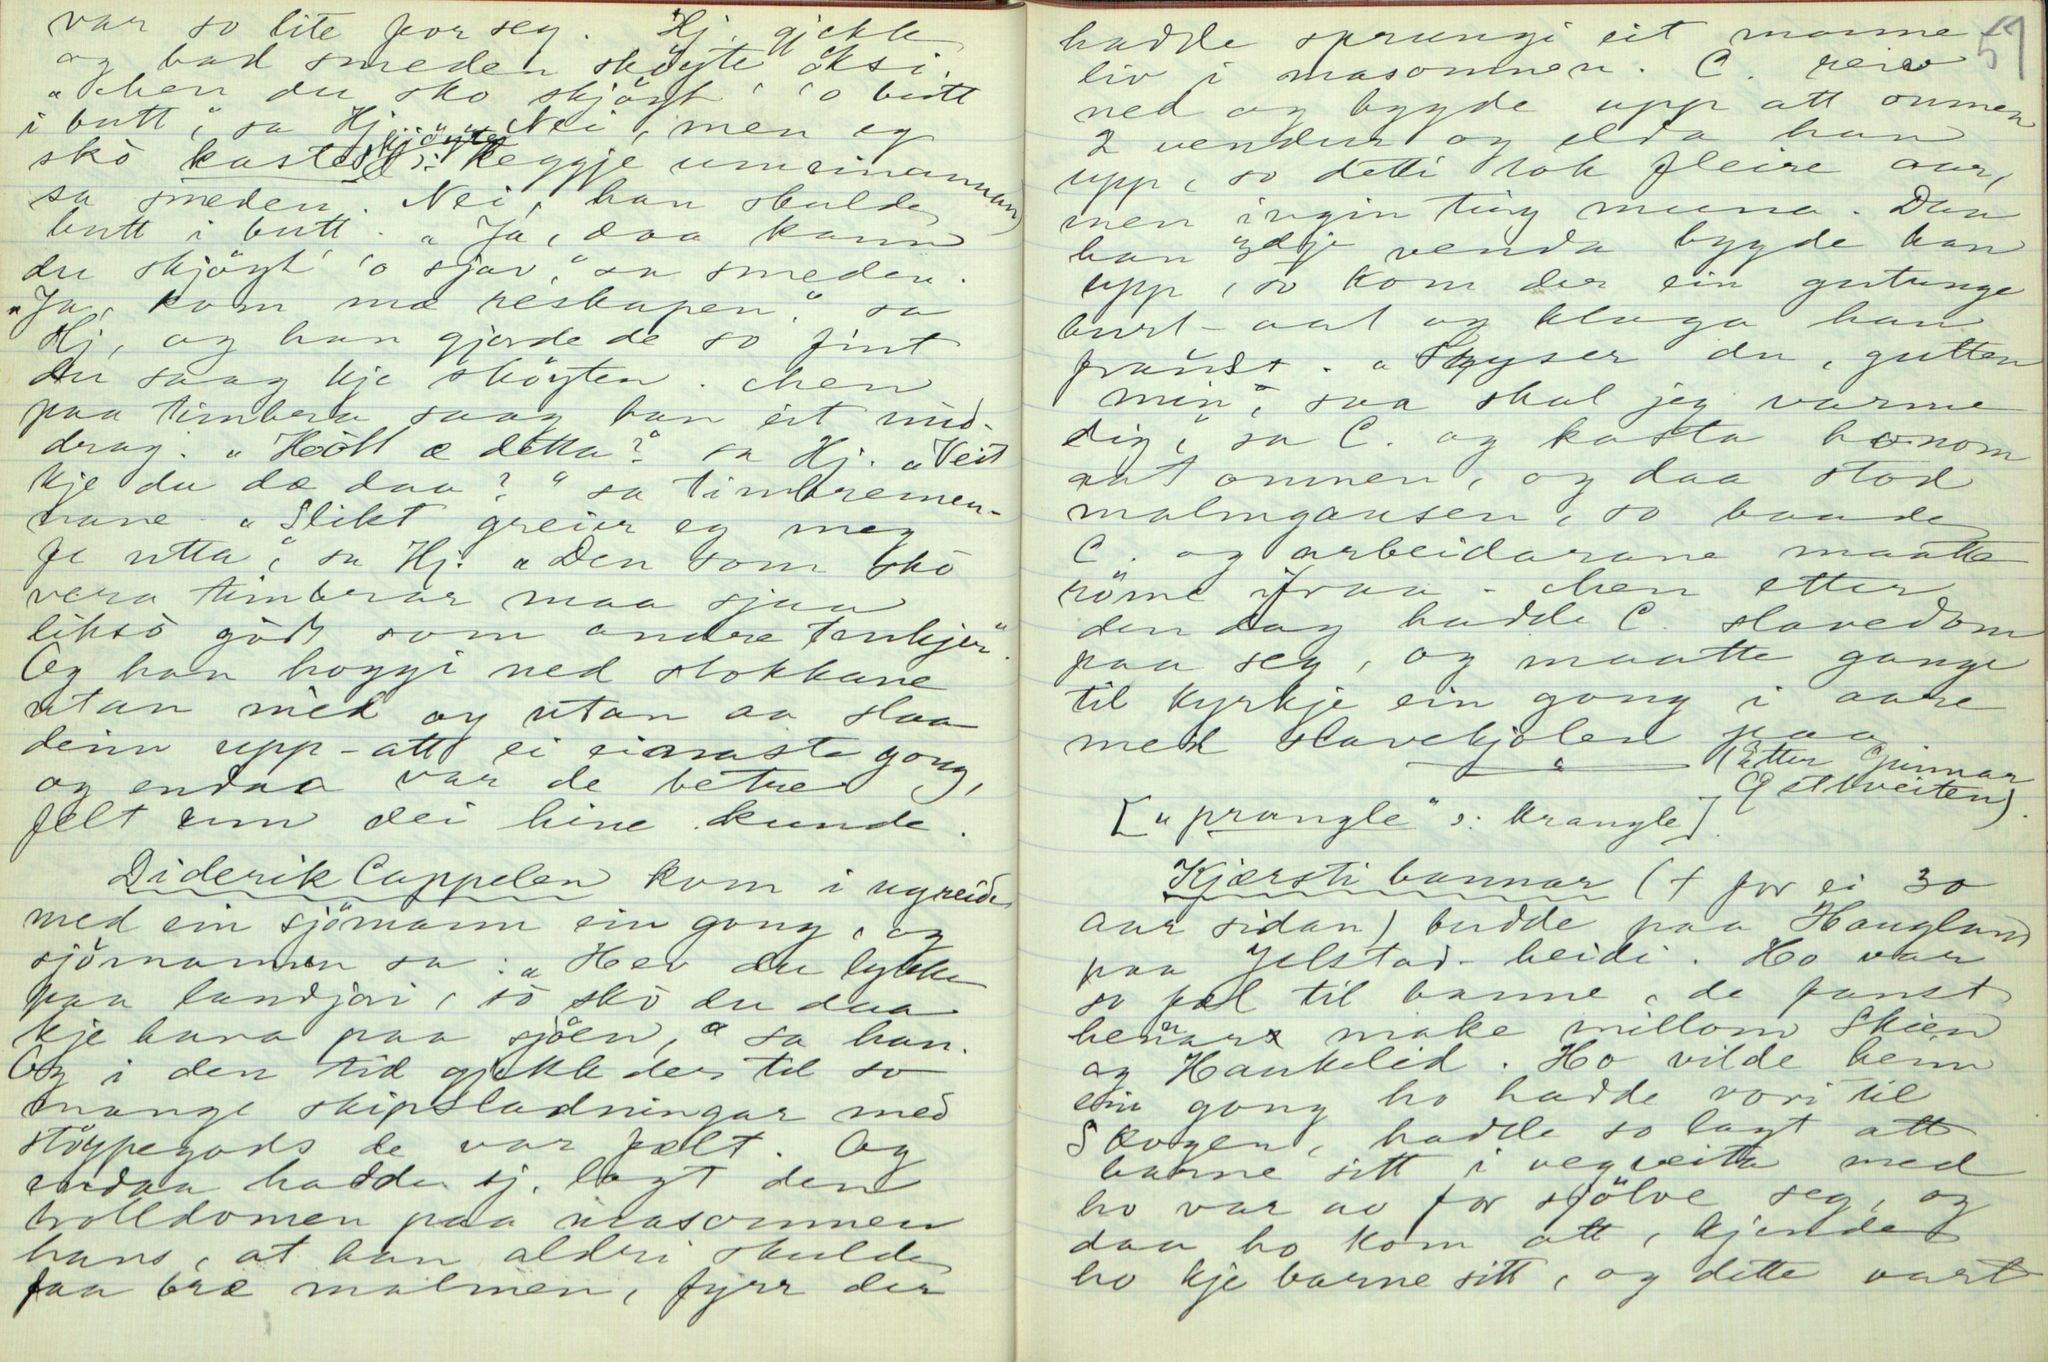 var so lite for seg. Hj. gjekk
og bad smeden skøyte öksi.
"Men du sko skjöyt' 'o butt
i butt," sa Hj. "Nei, men eg
skjöyte
skò kaste ɔ: leggje um einannan)
sa smeden. Nei, han skulde
butt i butt. "Ja, daa kann
du skjöyt' 'o sjav," sa smeden.
"Ja, kom mæ reiskapen," sa
Hj, og han gjorde de so fint
du saag kje sköyten. Men
paa timbera saag han eit mid-
drag. "Hòtt æ detta?" sa Hj. "Veit
kje du dæ daa?" sa timbremen-
nane. "Slikt greier eg meg
fe utta," sa Hj. "Den som skò
vera timbrar maa sjaa
liksò gòdt som andre tenkjer".
Og han hoggi ned stokkane
utan mèd og utan aa slaa
deim upp-att ei einaste gong,
og endaa var de betre
felt enn dei hine kunde.
Diderik Cappelen kom i ugreide
med ein sjömann ein gong, og
sjömannen sa: "Hev du lykke
paa landjori, so skò du daa
kje hava paa sjöen," sa han.
Og i den tid gjekk der til so
mange skipsladningar med
stöypegods de var fælt. Og
endaa hadde sj. lagt den
trolldomen paa masomnen
hans, at han aldri skulde
faa bræ malmen, fyrr der
51
hadde sprungi eit manne-
liv i masomnen. C. reiv
ned og bygde upp att omnen
2 vendur og elda han
upp, so detti tok fleire aar,
men ingin ting muna. Daa
han 3dje venda bygde han
upp, so kom der ein gutunge
burt-aat og klaga han
fraus. "Fryser du, gutten
min, saa skal jeg varme
dig," sa C. og kasta honom
aat omnen, og daa stod
malmgausen, so baade
C. og arbeidarane maatte
röme ifraa. Men etter
den dag hadde C. slavedom
paa seg, og maatte gange
til kyrkje ein gong i aare
med slavekjolen paa
(Etter Gunnar
Østtveiten).
["prangle" ɔ: krangle].
Kjærsti bannar († for ei 30
aar sidan) budde paa Haugland
paa Jelstad-heidi. Ho var
so fæl til banne, de fanst
hennar make millom Skien
og Haukelid. Ho vilde heim
ein gong ho hadde vori til
Skogen, hadde so lagt att
barne sitt i vegveita med
ho var av for sjölve seg, og
daa ho kom att, kjende
ho kje barne sitt, og dette vart